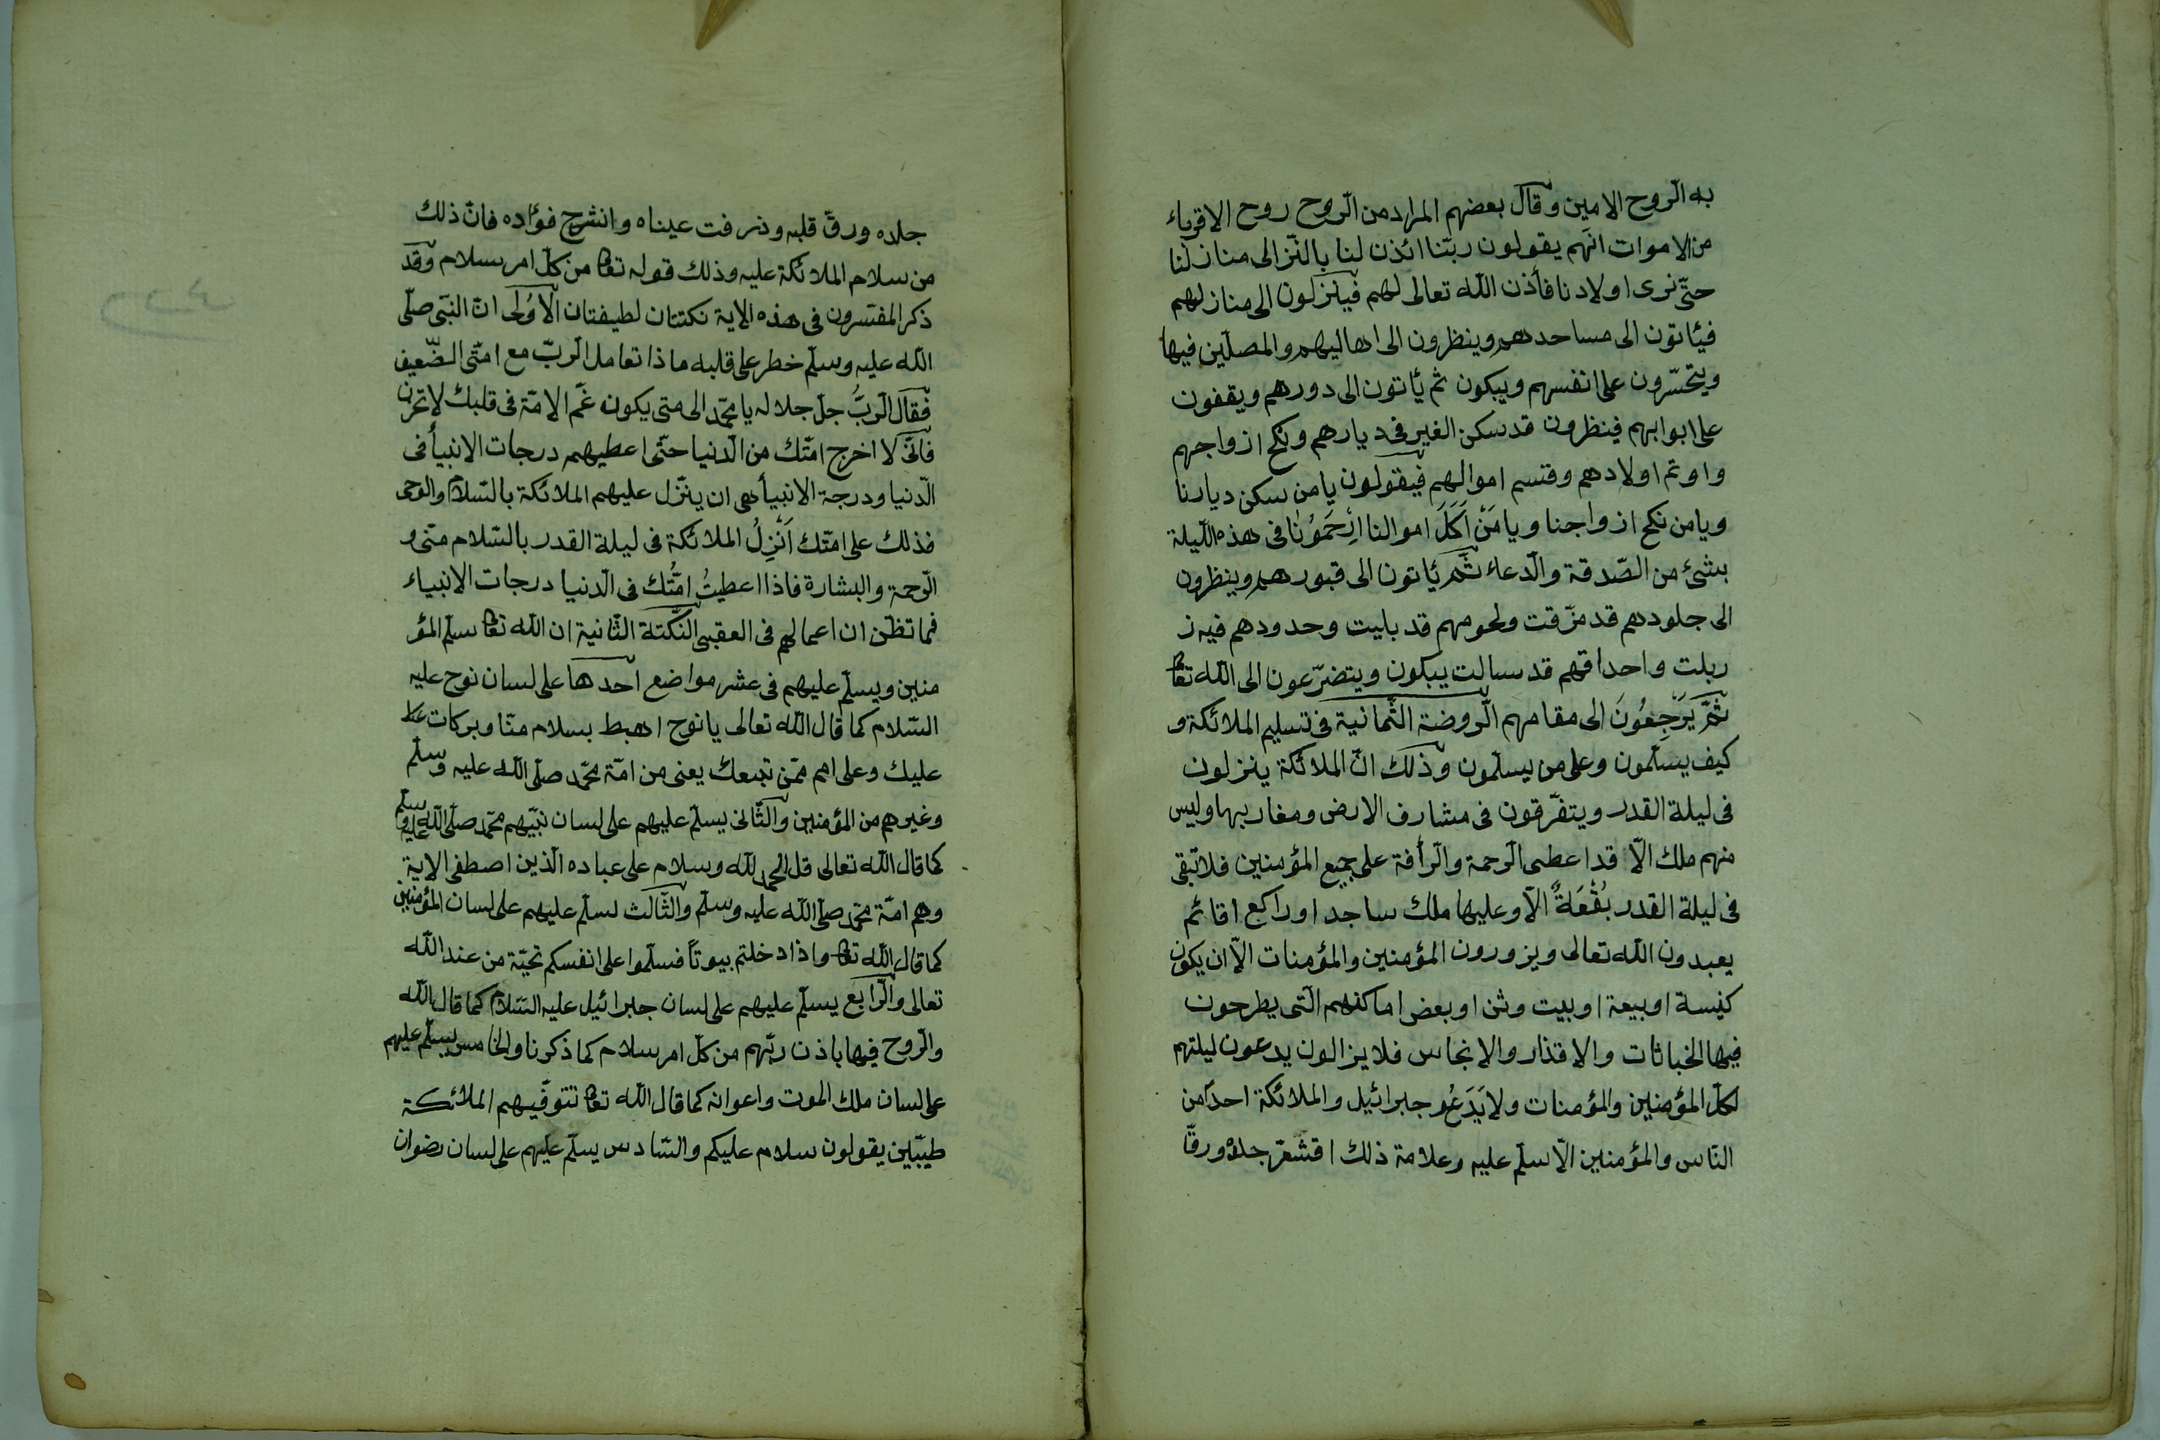 به الروح الامين وقال بعضهم المراد من الروح روح الاقرباء
من الاموات انهم يقولون ربّنا ائذن لنا بالنّزالى منازلنا
حتّى نرى اولادنا فأذن الله تعالى لهم فينزلون الى منازلهم
فيئاتون الى مساجدهم وينظرون الى اهاليهم والمصلّين فيها
ويتحسّرون على انفسهم ويبكون ثم يأتون الى دورهم ويقفون
على ابوابهم فينظرون قد سكن الغير فى ديارهم ونكح ازواجهم
واوتم اولادهم وقتسم اموالهم فيقولون يا من سكن ديارنا
ويا من نكح ازواجنا ويا مَنْ اَكَلَ اموالنا اِرْحَمُوْنَا فى هذه الليلة
بشئ من الصّدقة والدّعاء ثُمَّ يأتون الى قبورهم وينظرون
الى جلودهم قد مزّقت ولحومهم قد بليت وحدودهم فيه ز
ربلت واحداقهم قد سالت يبكون ويتضرّعون الى الله تعا
ثُمَّ يَرْجِعُونَ الى مقامهم الرّوضة الثّمانية فى تسليم الملائكة و
كيف يسلّمون وعلى من يسلّمون وذلك انّ الملائكة ينزلون
فى ليلة القدر ويتفرّقون فى مشارف الارض ومغاربها وليس
منهم ملك الّا قد اعطى الرّحمة والرّأفة على جميع المؤمنين فلا تبقى
فى ليلة القدر بُقْعَةٌ الّا وعليها ملك ساجد او راكع اقائم
يعبدون الله تعالى ويزورون المؤمنين والمؤمنات الّا ان يكون
كنيسة او بيعة او بيت وثن او بعض اماكنهم الّتى يطرحون
فيها الخباثات والاقذار والانجاس فلا يزالون يدعون ليلتهم
لكلّ المؤمنين والمؤمنات ولا يَدَعُو جبرائيل والملائكة احدًا من
النّاس والمؤمنين الّا سلّم عليه وعلامة ذلك اقشعرّ جلده ورقّ
جلده ورقّ قلبه وذرفت عيناه وانشرح فؤاده فانّ ذلك
من سلام الملائكة عليه وذلك قوله تعا من كلّ امر سلام وقد
ذكر المفسّرون فى هذه الاية نكتتان لطيفتان الاُولى انّ النبّى صلّى
الله عليه وسلّم خطر على قلبه ماذا تعامل الرّبّ مع امتّى الضّعيف
فقال الرّبُّ جلّ جلاله يا محمّد الى متى يكون غمّ الامّة فى قلبك لا تحزن
فانّى لا اخرج امّتك من الدّنيا حتّى اعطيهم درجات الانبيأ فى
الدّنيا ودرجة الانبيأ هى ان ينزّل عليهم الملائكة بالسّلام والوحى
فذلك على امّتك اَنْزِلُ الملائكة فى ليلة القدر بالسّلام متى و
الرّحمة والبشارة فاذا اعطيتُ امّتُك فى الدّنيا درجات الانبياء
فما تظنّ ان اعمالهم فى العقبى النّكتة الثّانية ان الله تعا سلّم المؤ
منين ويسلّم عليهم فى عشر مواضع احدها على لسان نوح عليه
السّلام كما قال الله تعالى يا نوح اهبط بسلام منّا وبركات
عليك وعلى امم ممّن تبعك يعنى من امّة محمّد صلّى الله عليه وسلّم
وغيرهم من المؤمنين والثّانى يسلّم عليهم على لسان نبيّهم محمّد صلّى الله عليه وسلّم
كما قال الله تعالى قل الحمد لله وسلام على عباده الّذين اصطفى الاية
وهم امّة محمّد صلّى الله عليه وسلّم والثّالث لسلّم عليهم على لسان المؤمنين
كما قال الله تعا واذا دخلتم بيوتًا فسلّموا على انفسكم تحيّة من عند الله
تعالى والرّابع يسلّم عليهم على لسان جبرائيل عليه السّلام كما قال الله
والرّوح فيها باذن ربّهم من كلّ امر سلام كما ذكرنا والخامس يسلّم عليهم
على لسان ملك الموت واعوانه كما قال الله تعا تتوفّيهم الملائكة
طيبّين يقولون سلام عليكم والسّادس يسلّم عليهم على لسان رضوان